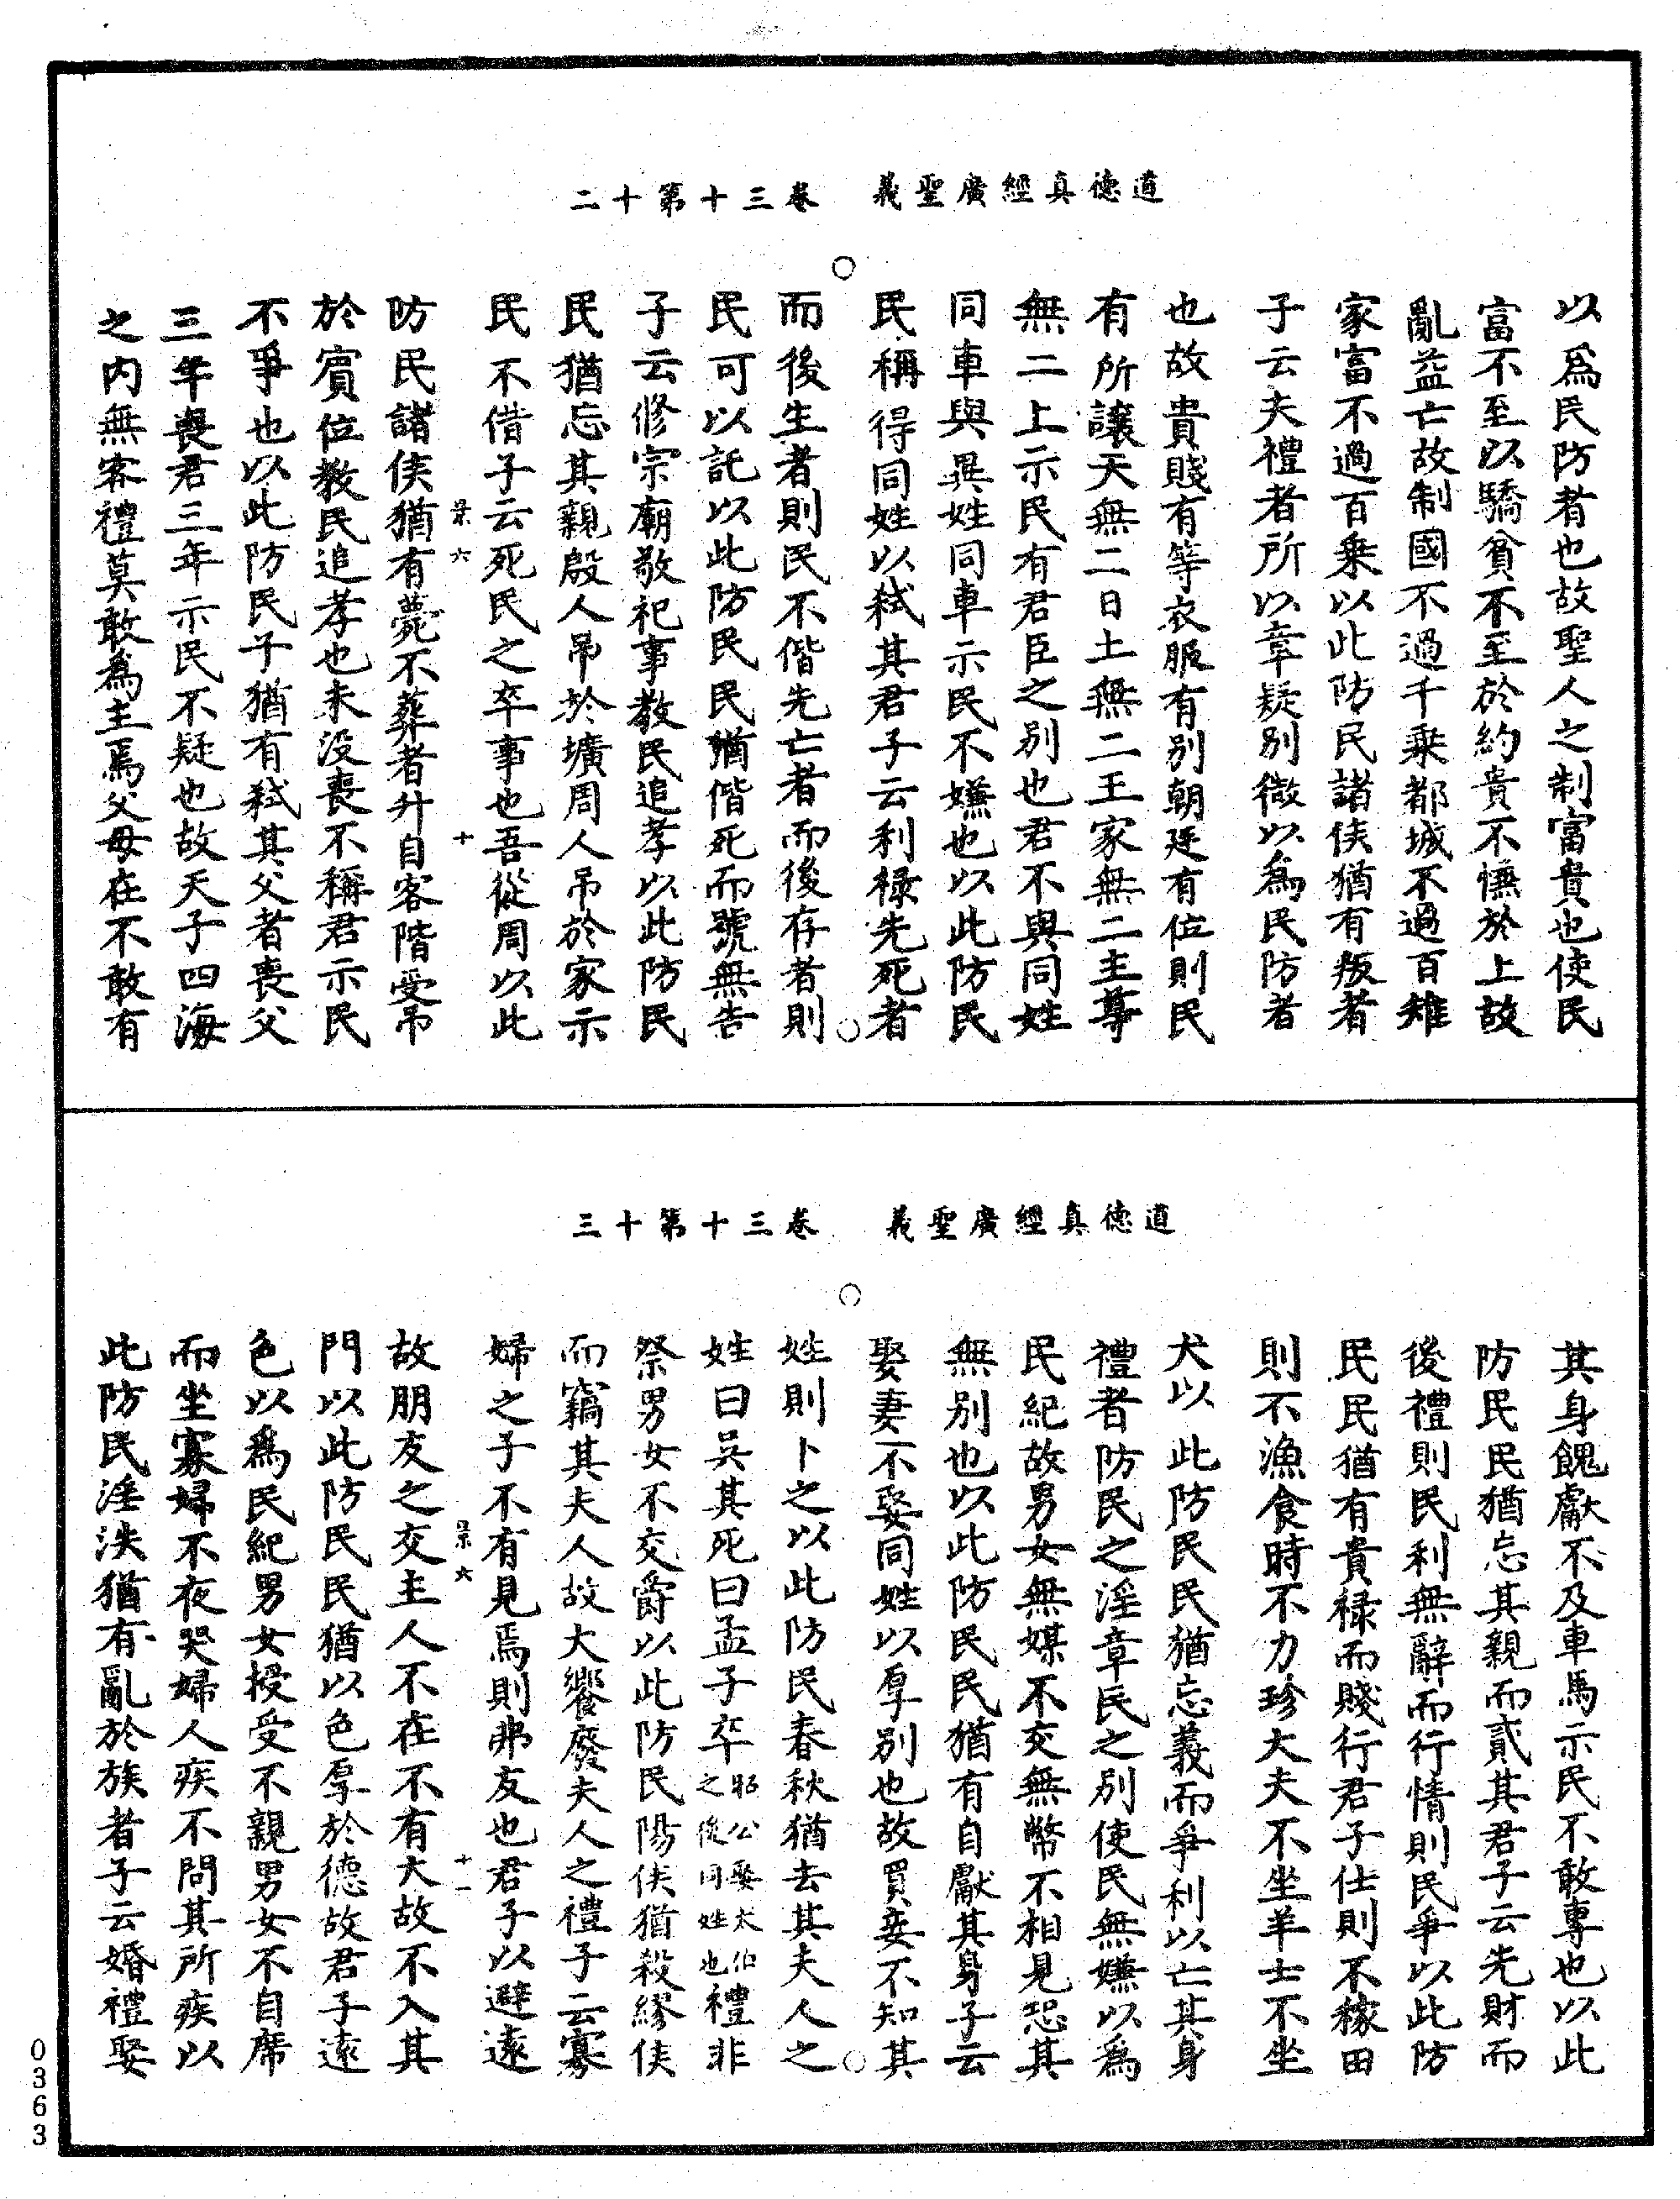 道德真經廣聖義　卷三十第十二
以爲民防者也故聖人之制富貴也使民
富不至以驕貧不至於約貴不慊於上故
亂益亡故制國不過千乗都城不過百雉
家富不過百乗以此防民諸侯猶有叛者
子云夫禮者所以章疑别微以爲民防者
也故貴賤有等衣服有别朝廷有位則民
有所讓天無二日土無二王家無二主尊
無二上示民有君臣之别也君不與同姓
同車與異姓同車示民不嫌也以此防民
民稱得同姓以弑其君子云利禄先死者
而後生者則民不偝先亡者而後存者則
民可以託以此防民民猶偝死而號無告
子云修宗廟敬祀事教民追孝以此防民
民猶忘其親殷人弔於壙周人弔於家示
民不偝子云死民之卒事也吾從周以此
景六　十
防民諸侯猶有薨不葬者升自客階受弔
於賓位教民追孝也未没喪不稱君示民
不爭也以此防民子猶有弑其父者喪父
三年喪君三年示民不疑也故天子四海
之内無客禮莫敢爲主焉父母在不敢有
道德真經廣聖義　卷三十第十三
其身餽獻不及車馬示民不敢專也以此
防民民猶忘其親而貳其君子云先財而
後禮則民利無辭而行情則民爭以此防
民民猶有貴禄而賤行君子仕則不稼田
則不漁食時不力珍大夫不坐羊士不坐
犬以此防民民猶忘義而爭利以亡其身
禮者防民之淫章民之别使民無嫌以爲
民紀故男女無媒不交無幣不相見恐其
無别也以此防民民猶有自獻其身子云
娶妻不娶同姓以厚别也故買妾不知其
姓則卜之以此防民春秋猶去其夫人之
姓曰吳其死曰孟子卒昭公娶太伯之後同姓也禮非
祭男女不交爵以此防民陽侯猶殺繆侯
而竊其夫人故大饗廢夫人之禮子云寡
婦之子不有見焉則弗友也君子以避逺
景六　十一
故朋友之交主人不在不有大故不入其
門以此防民民猶以色厚於德故君子逺
色以爲民紀男女授受不親男女不自席
而坐寡婦不夜哭婦人疾不問其所疾以
此防民淫泆猶有亂於族者子云婚禮娶
0363